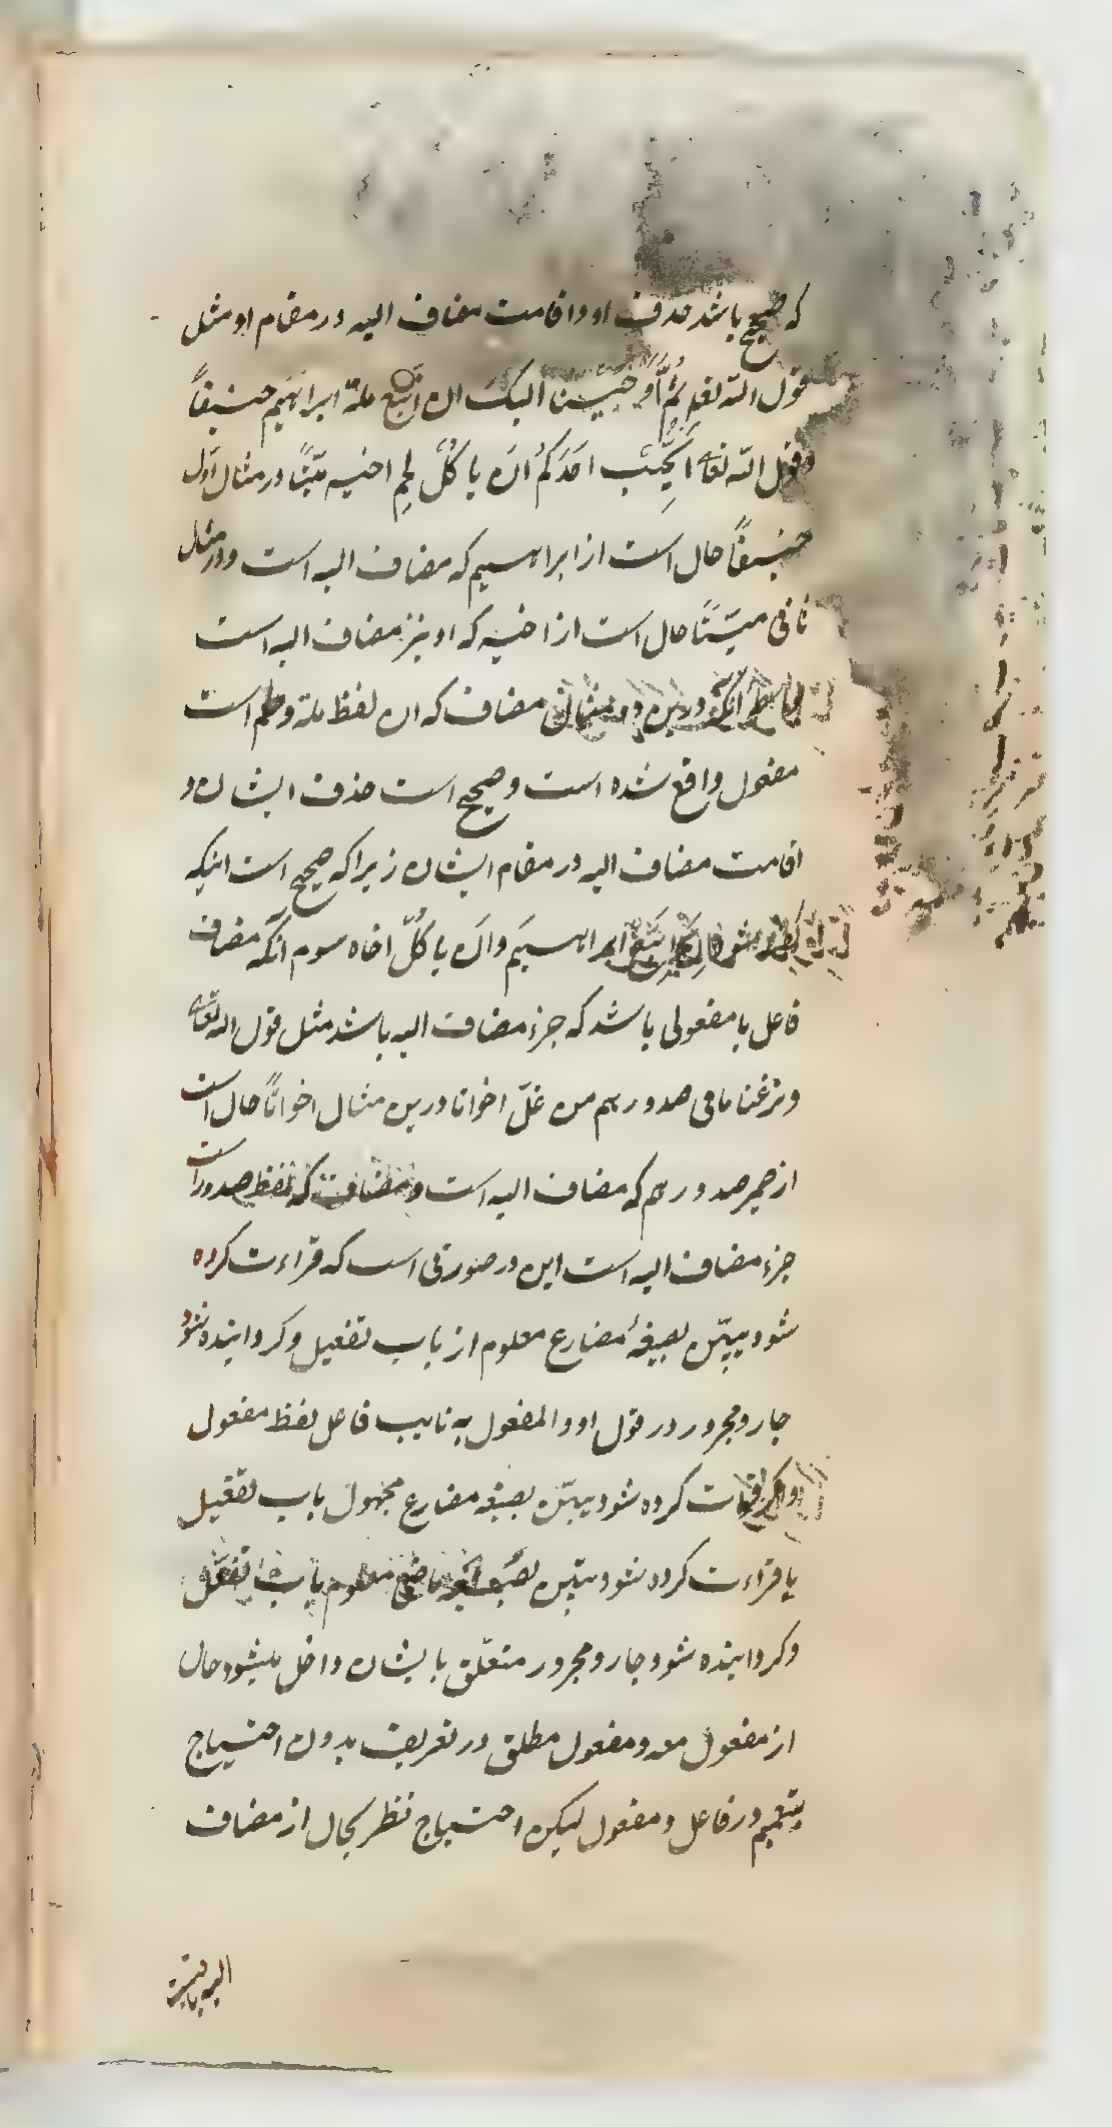 که صحیح باشد حذف او و اقامت مضاف الیه در مقام او مثل
قول الله تعالی ثُمَّ أوحینا الیکَ ان اتَّبِع ملة ابراهیم حنیفاً
و قول الله تعالی ایُحِبُّ احَدَکُم اَن یا کُلَ لحم اخیه میّتاً در مثال اول
حنیفاً حال است از ابراهیم که مضاف الیه است و در مثال
ثانی میتّتاً حال است از اخیه که او نیز مضاف الیه است
آنکه درین دو مثال مضاف که ان لفظ ملة و لحم است
مفعول واقع شده است و صحیح است حذف ایشان و
اقامت مضاف الیه در مقام ایشان زیرا که صحیح است اینکه
ابراهیم و اَن یا کلَّ اخاه سوم آنکه مضاف
فاعل یا مفعولی باشد که جزء مضاف الیه باشد مثل قول الله تعالی
و نزعنا ما فی صدورهم من غلّ اخوانا درین مثال اخواناً حال است
از ضمیر صدورهم که مضاف الیه است و مضاف که لفظ صدور است
جزء مضاف الیه است این در صورتی است که قراءت کرده
شود یبیّن بصیغهٔ مضارع معلوم از باب تفعیل و کردانیده شود
جار و مجرور در قول او و المفعول به نایب فاعل لفظ مفعول
و اگر قراءت کرده شود یبیّن بصیغه مضارع مجهول باب تفعیل
یا قراءت کرده شود تبیّن بصیغه ماضی معلوم باب تفعّل
و کردانیده شود جار و مجرور متعلّق بایشان داخل میشود حال
از مفعول معه و مفعول مطلق در تعریف بدون احتیاج
بتعمیم در فاعل و مفعول لیکن احتیاج نظر بحال از مضاف
الیه